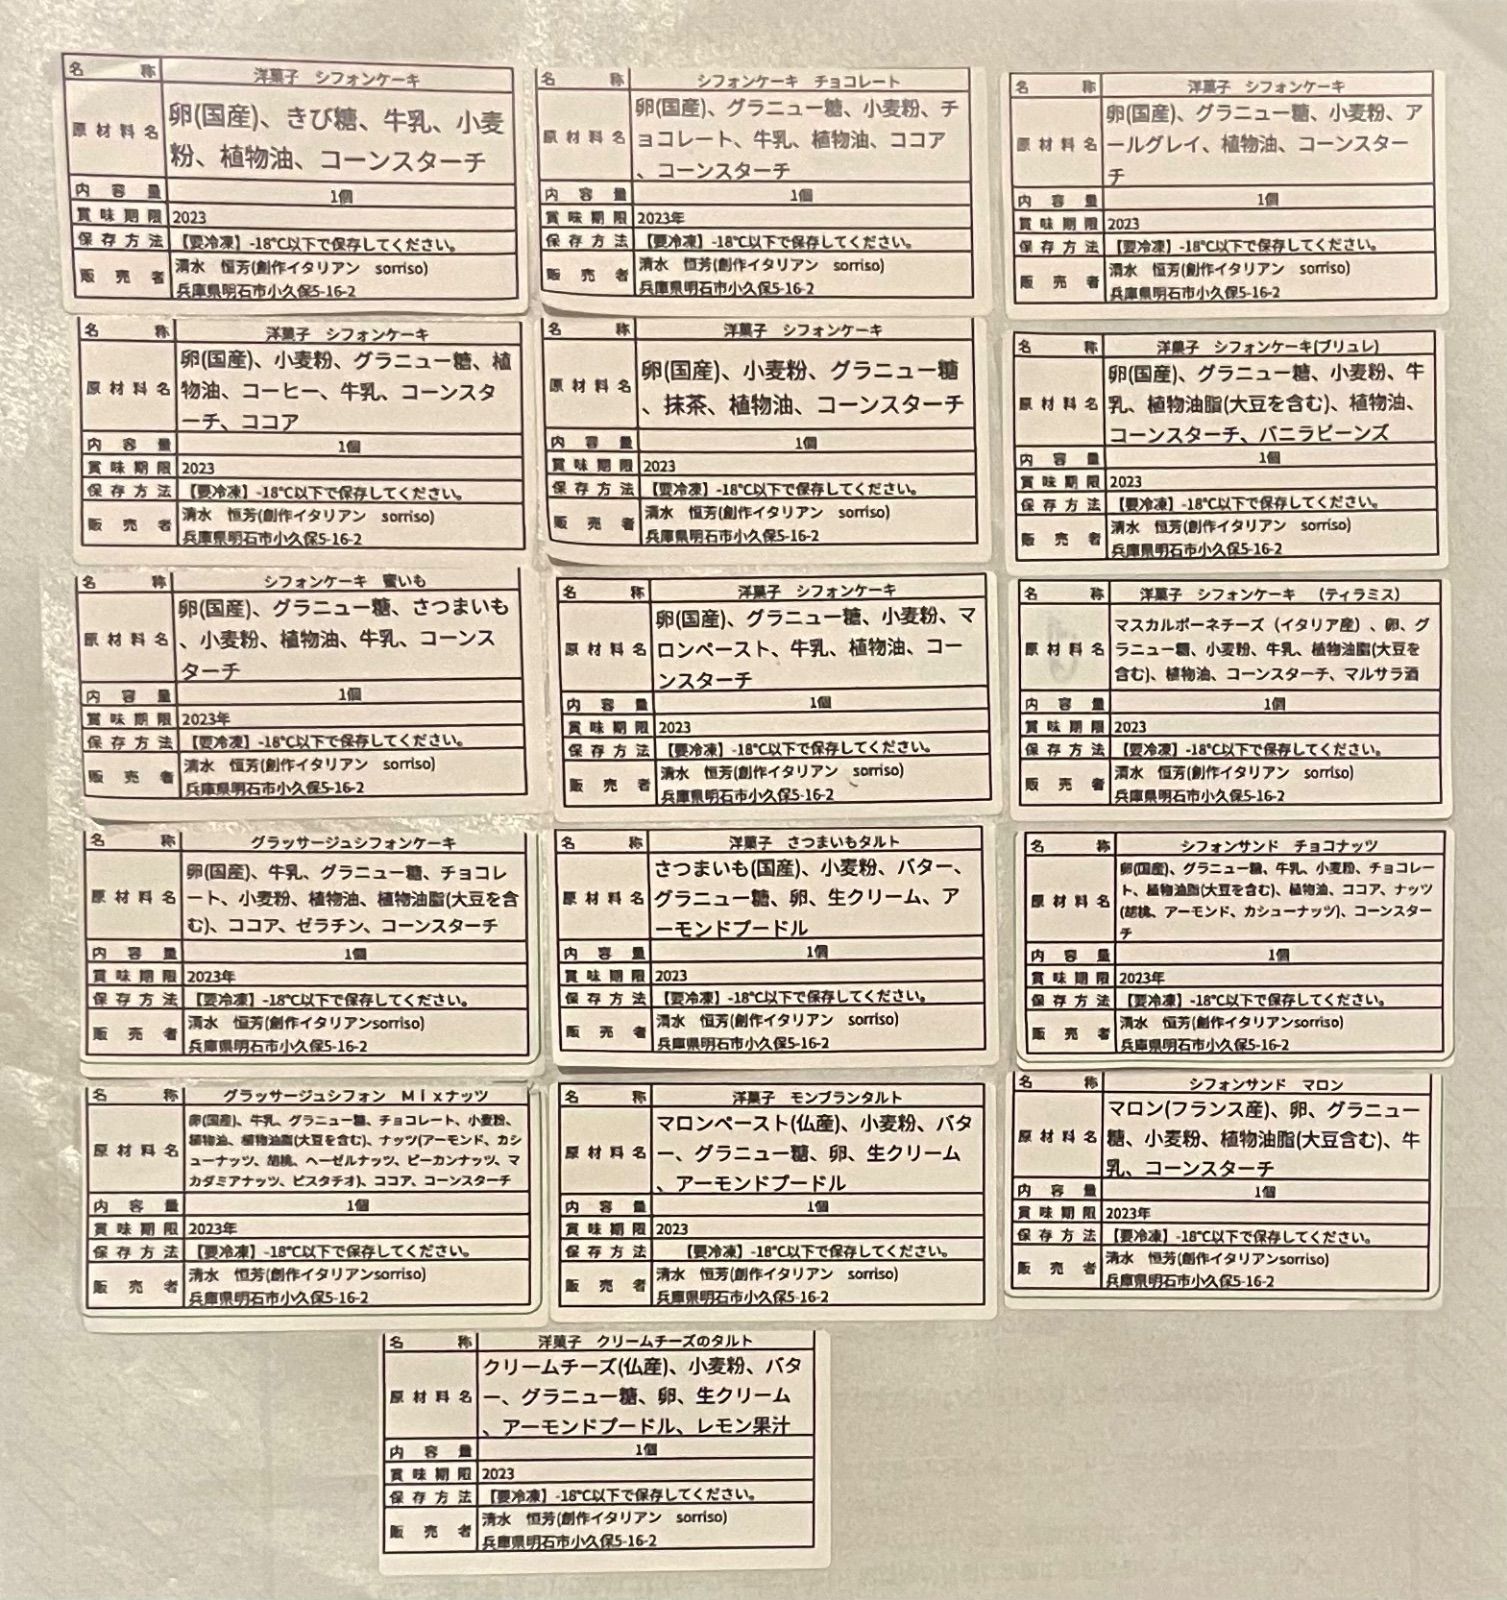 名称 洋菓子 シフォンケーキ
原材料名 卵(国産)、きび糖、牛乳、小麦
粉、植物油、コーンスターチ
内容量 1個
賞味期限 2023
保存方法 【要冷凍】-18℃以下で保存してください。
販売者 清水 恒芳(創作イタリアン sorriso)
兵庫県明石市小久保5-16-2
名称 シフォンケーキ チョコレート
原材料名 卵(国産)、グラニュー糖、小麦粉、チ
ョコレート、牛乳、植物油、ココア
、コーンスターチ
内容量 1個
賞味期限 2023年
保存方法 【要冷凍】-18℃以下で保存してください。
販売者 清水 恒芳(創作イタリアン sorriso)
兵庫県明石市小久保5-16-2
名称 洋菓子 シフォンケーキ
原材料名 卵(国産)、グラニュー糖、小麦粉、ア
ールグレイ、植物油、コーンスター
チ
内容量 1個
賞味期限 2023
保存方法 【要冷凍】-18℃以下で保存してください。
販売者 清水 恒芳(創作イタリアン sorriso)
兵庫県明石市小久保5-16-2
名称 洋菓子 シフォンケーキ
原材料名 卵(国産)、小麦粉、グラニュー糖、植
物油、コーヒー、牛乳、コーンスタ
ーチ、ココア
内容量 1個
賞味期限 2023
保存方法 【要冷凍】-18℃以下で保存してください。
販売者 清水 恒芳(創作イタリアン sorriso)
兵庫県明石市小久保5-16-2
名称 洋菓子 シフォンケーキ
原材料名 卵(国産)、小麦粉、グラニュー糖
、抹茶、植物油、コーンスターチ
内容量 1個
賞味期限 2023
保存方法 【要冷凍】-18℃以下で保存してください。
販売者 清水 恒芳(創作イタリアン sorriso)
兵庫県明石市小久保5-16-2
名称 洋菓子 シフォンケーキ(ブリュレ)
原材料名 卵(国産)、グラニュー糖、小麦粉、牛
乳、植物油脂(大豆を含む)、植物油、
コーンスターチ、バニラビーンズ
内容量 1個
賞味期限 2023
保存方法 【要冷凍】-18℃以下で保存してください。
販売者 清水 恒芳(創作イタリアン sorriso)
兵庫県明石市小久保5-16-2
名称 シフォンケーキ 蜜いも
原材料名 卵(国産)、グラニュー糖、さつまいも
、小麦粉、植物油、牛乳、コーンス
ターチ
内容量 1個
賞味期限 2023年
保存方法 【要冷凍】-18℃以下で保存してください。
販売者 清水 恒芳(創作イタリアン sorriso)
兵庫県明石市小久保5-16-2
名称 洋菓子 シフォンケーキ
原材料名 卵(国産)、グラニュー糖、小麦粉、マ
ロンペースト、牛乳、植物油、コー
ンスターチ
内容量 1個
賞味期限 2023
保存方法 【要冷凍】-18℃以下で保存してください。
販売者 清水 恒芳(創作イタリアン sorriso)
兵庫県明石市小久保5-16-2
名称 洋菓子 シフォンケーキ （ティラミス）
原材料名 マスカルポーネチーズ（イタリア産）、卵、グ
ラニュー糖、小麦粉、牛乳、植物油脂(大豆を
含む)、植物油、コーンスターチ、マルサラ酒
内容量 1個
賞味期限 2023
保存方法 【要冷凍】-18℃以下で保存してください。
販売者 清水 恒芳(創作イタリアン sorriso)
兵庫県明石市小久保5-16-2
名称 グラッサージュシフォンケーキ
原材料名 卵(国産)、牛乳、グラニュー糖、チョコレ
ート、小麦粉、植物油、植物油脂(大豆を含
む)、ココア、ゼラチン、コーンスターチ
内容量 1個
賞味期限 2023年
保存方法 【要冷凍】-18℃以下で保存してください。
販売者 清水 恒芳(創作イタリアンsorriso)
兵庫県明石市小久保5-16-2
名称 洋菓子 さつまいもタルト
原材料名 さつまいも(国産)、小麦粉、バター、
グラニュー糖、卵、生クリーム、ア
ーモンドプードル
内容量 1個
賞味期限 2023
保存方法 【要冷凍】-18℃以下で保存してください。
販売者 清水 恒芳(創作イタリアン sorriso)
兵庫県明石市小久保5-16-2
名称 シフォンサンド チョコナッツ
原材料名 卵(国産)、グラニュー糖、牛乳、小麦粉、チョコレー
ト、植物油脂(大豆を含む)、植物油、ココア、ナッツ
(胡桃、アーモンド、カシューナッツ)、コーンスター
チ
内容量 1個
賞味期限 2023年
保存方法 【要冷凍】-18℃以下で保存してください。
販売者 清水 恒芳(創作イタリアンsorriso)
兵庫県明石市小久保5-16-2
名称 グラッサージュシフォン Ｍｉｘナッツ
原材料名 卵(国産)、牛乳、グラニュー糖、チョコレート、小麦粉、
植物油、植物油脂(大豆を含む)、ナッツ(アーモンド、カシ
ューナッツ、胡桃、ヘーゼルナッツ、ピーカンナッツ、マ
カダミアナッツ、ピスタチオ)、ココア、コーンスターチ
内容量 1個
賞味期限 2023年
保存方法 【要冷凍】-18℃以下で保存してください。
販売者 清水 恒芳(創作イタリアンsorriso)
兵庫県明石市小久保5-16-2
名称 洋菓子 モンブランタルト
原材料名 マロンペースト(仏産)、小麦粉、バタ
ー、グラニュー糖、卵、生クリーム
、アーモンドプードル
内容量 1個
賞味期限 2023
保存方法 【要冷凍】-18℃以下で保存してください。
販売者 清水 恒芳(創作イタリアン sorriso)
兵庫県明石市小久保5-16-2
名称 シフォンサンド マロン
原材料名 マロン(フランス産)、卵、グラニュー
糖、小麦粉、植物油脂(大豆含む)、牛
乳、コーンスターチ
内容量 1個
賞味期限 2023年
保存方法 【要冷凍】-18℃以下で保存してください。
販売者 清水 恒芳(創作イタリアンsorriso)
兵庫県明石市小久保5-16-2
名称 洋菓子 クリームチーズのタルト
原材料名 クリームチーズ(仏産)、小麦粉、バタ
ー、グラニュー糖、卵、生クリーム
、アーモンドプードル、レモン果汁
内容量 1個
賞味期限 2023
保存方法 【要冷凍】-18℃以下で保存してください。
販売者 清水 恒芳(創作イタリアン sorriso)
兵庫県明石市小久保5-16-2